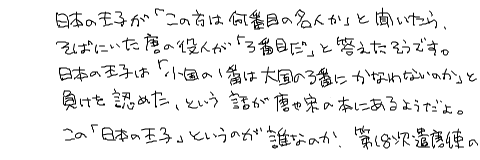 日本の王子が「この方は何番目の名人か」と聞いたら、
そばにいた唐の役人が「3番目だ」と答えたそうです。
日本の王子は「小国の1番は大国の3番にかなわないのか」と
負けを認めた、という話が唐や宋の本にあるようだよ。
この「日本の王子」というのが誰なのか、第18次遣唐使の